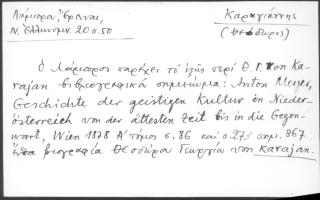 Λάμπρου, Έρευναι, Καραγιάννης
Ν. Ἑλληνομν. 20 σ. 50 (Θεόδωρος)
Ὁ Λάμπρος παρέχει τὸ ἑξῆς περὶ Θ. Γ. von Ka-
rajan βιβλιογραφικὸν σημείωμα: Anton Meyer,
Geschichte der geistigen Kultur in Nieder-
österreich von der ältesten Zeit bis in die Gegen-
wart, Wien 1878 Α' τόμος σ. 86 καὶ σ. 273 σημ. 367
ἔνθα βιογραφία Θεοδώρου Γεωργίου von Karajan.